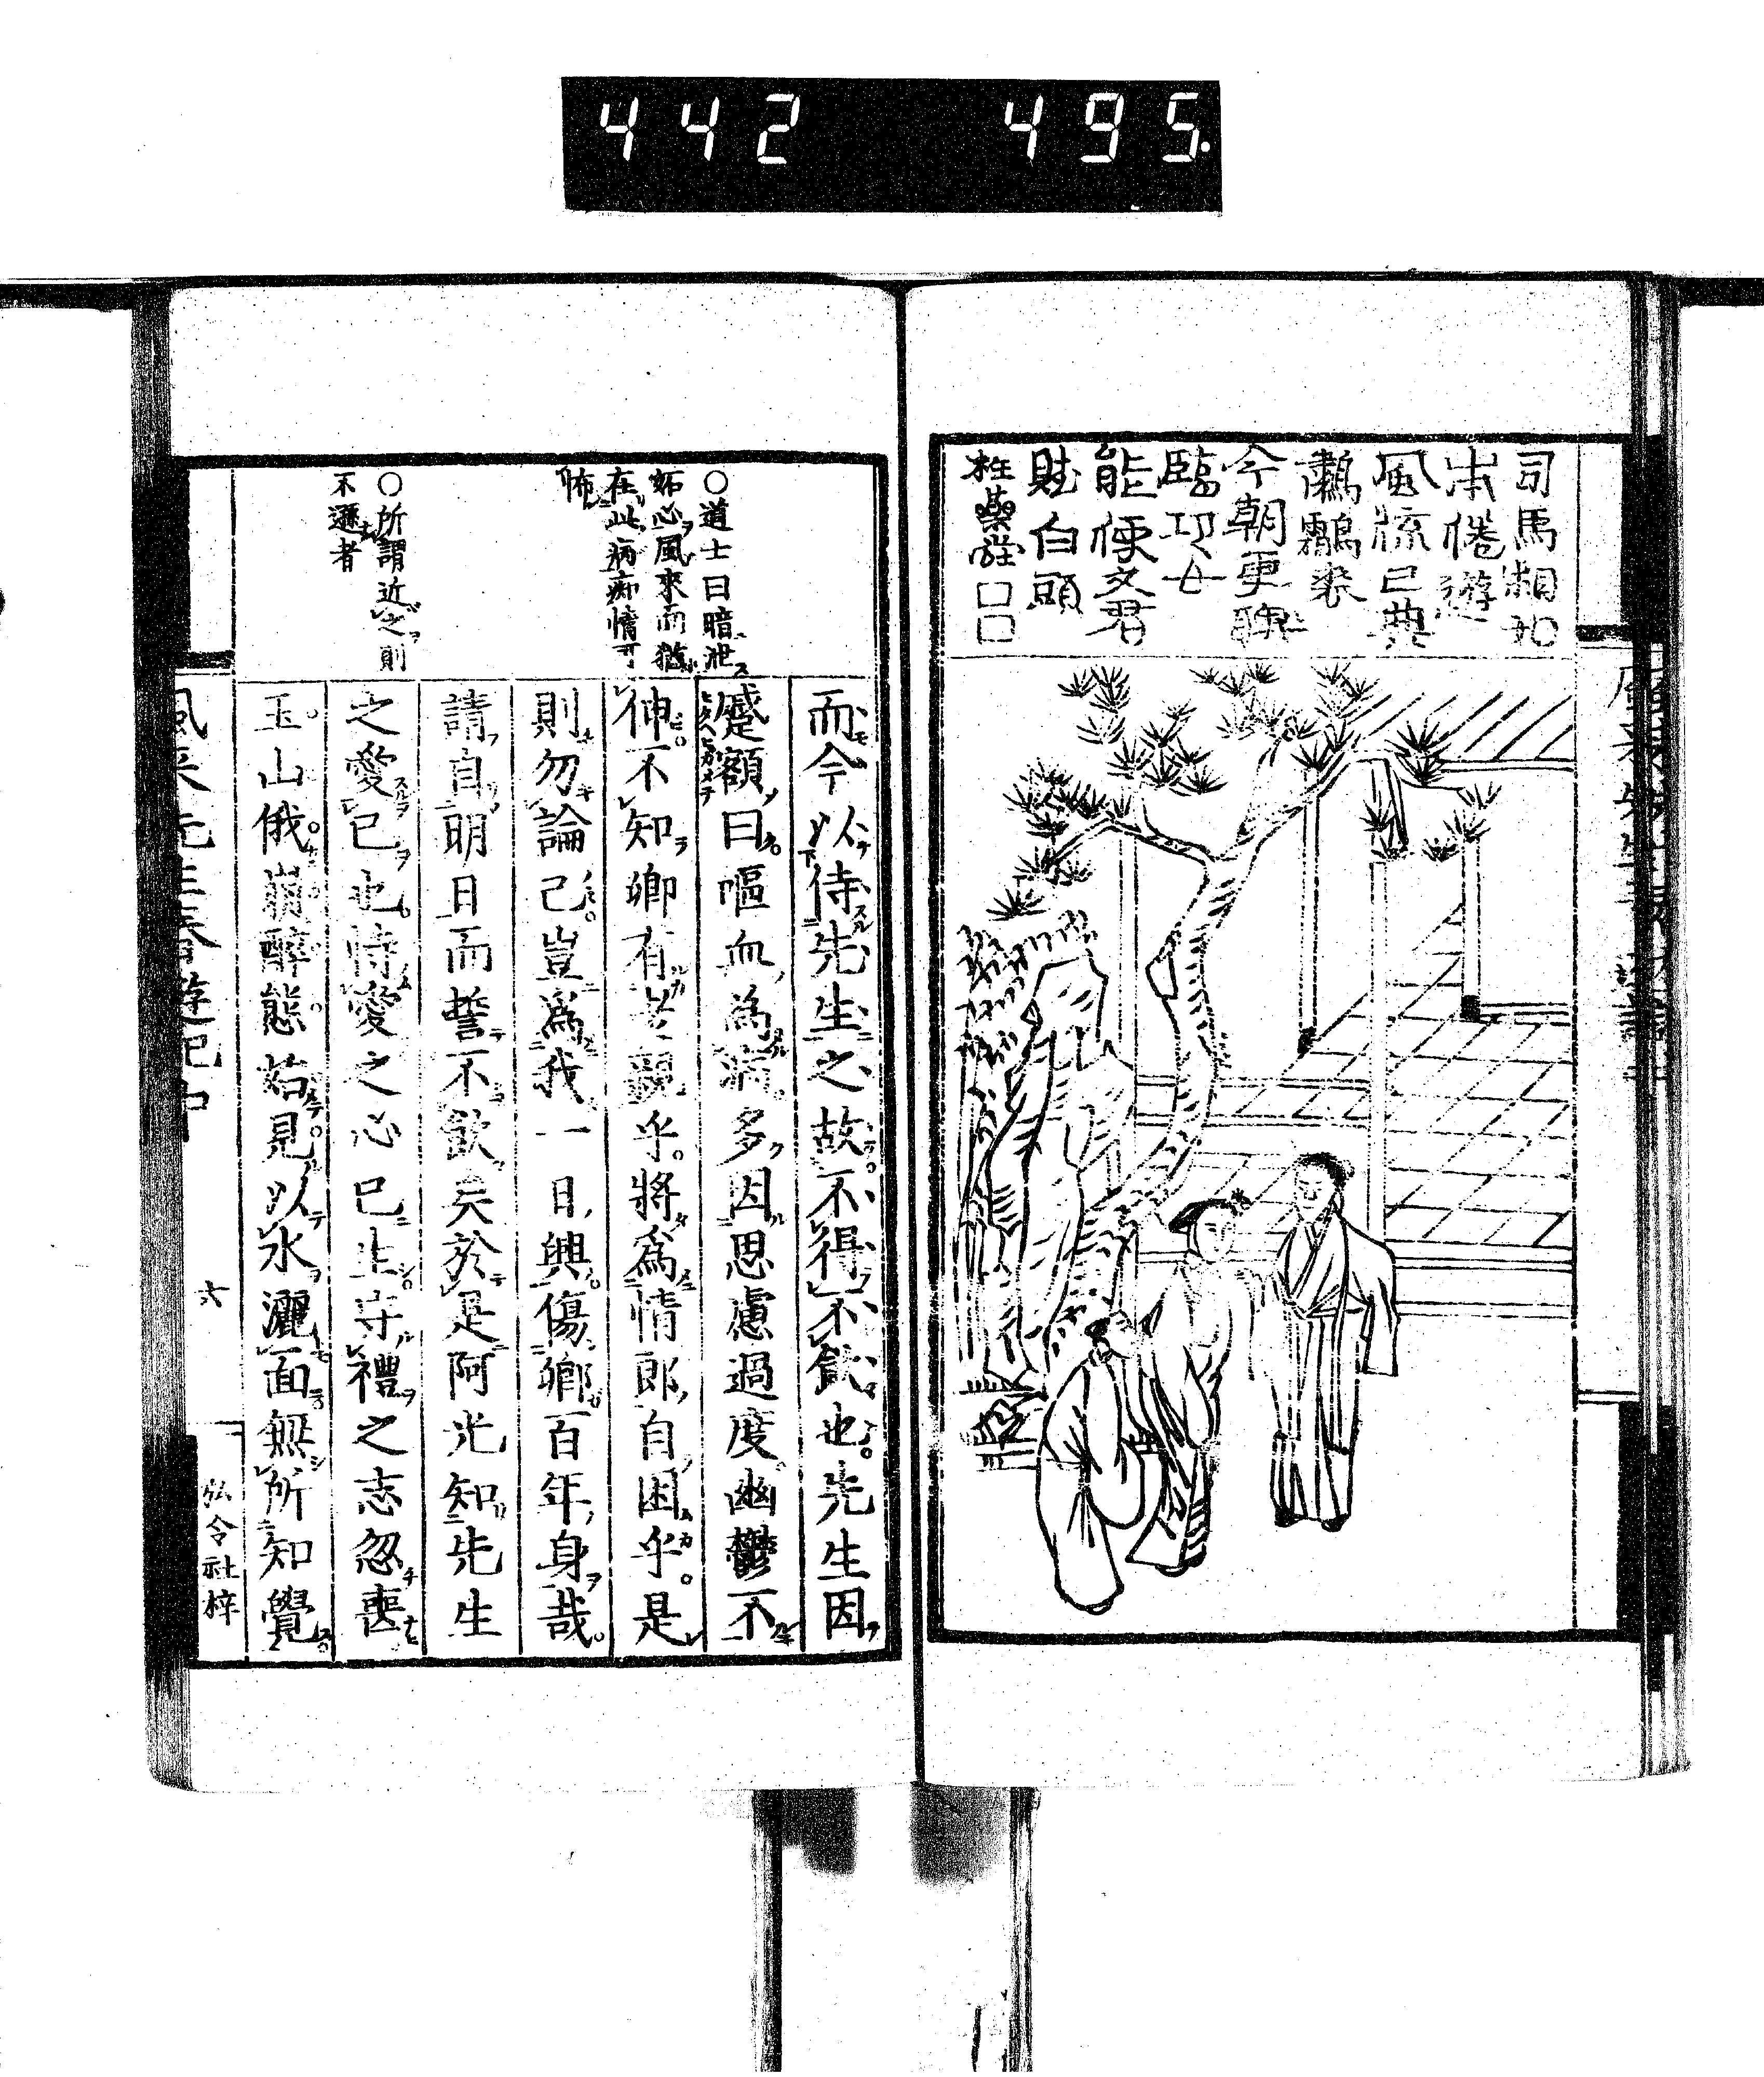 442 495.
司馬相如
本倦遊
風流已典
鷫鸘裘
今朝更聘
臨邛女
能使文君
賦白頭
○道士曰暗泄
妬心風來而猶
在此病痴情可
怖
○所謂近之則
不遜者
而今以侍先生之故不得不飲也先生因
蹙額曰嘔血為病多因思慮過度幽鬱不
伸不知卿有老親乎將爲情郎自困乎是
則勿論已豈爲我一日興傷卿百年身哉
請自明日而誓不飲矣於是阿光知先生
之愛已也恃愛之心已生守禮之志忽喪
玉山俄崩醉態始見以水灑面無所知覺
風來先生春遊記中
六
弘令社梓